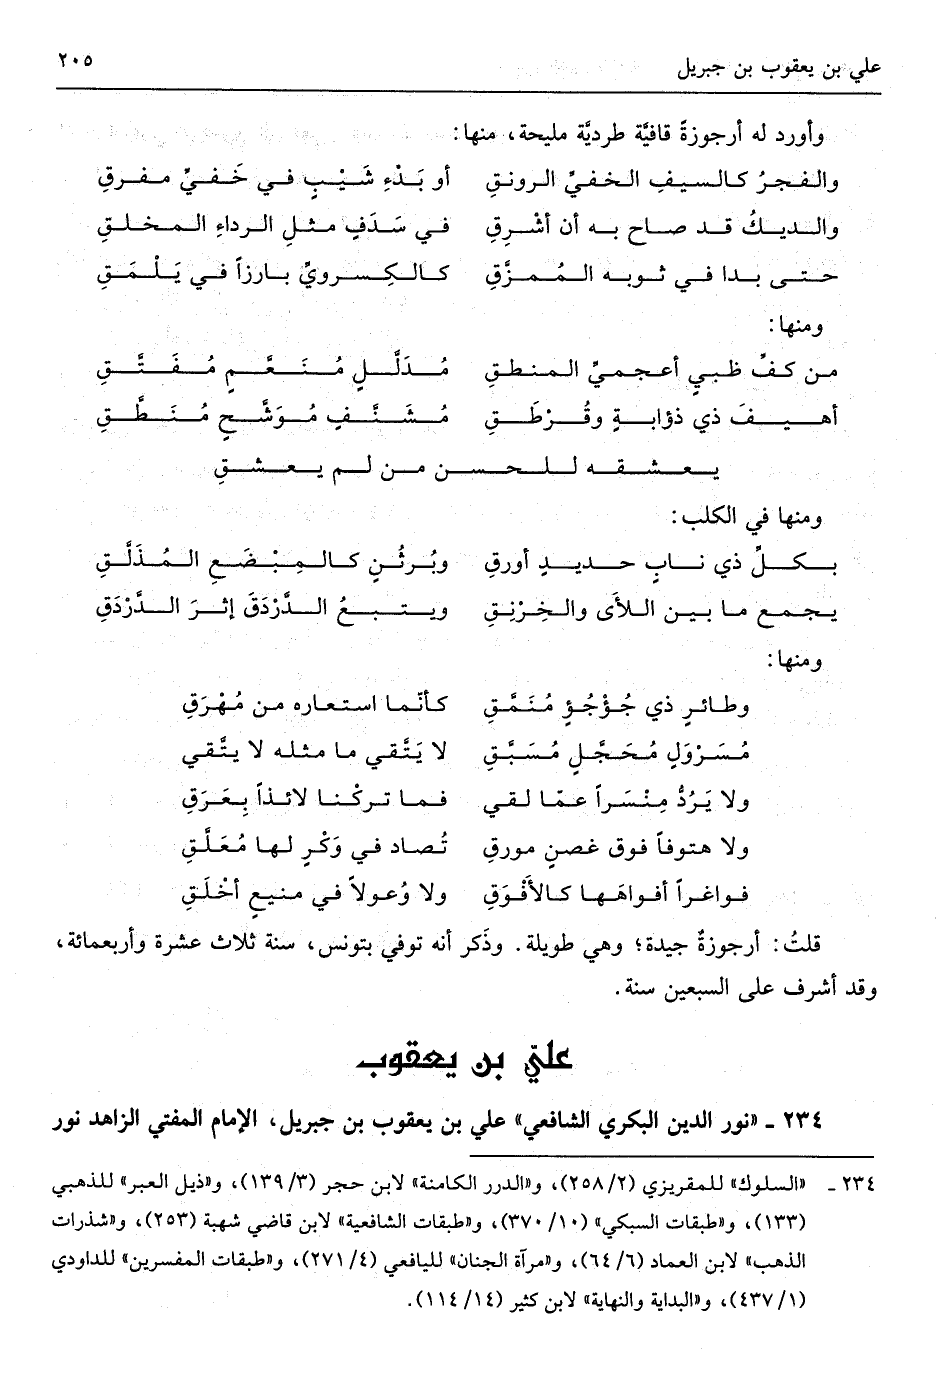 علي بن يعقوب بن جبريل ٢٠٥
وأورد له أرجوزةً قافيَّة طرديَّة مليحة، منها:
والفجرُ كالسيفِ الخفيِّ الرونقِ أو بَدْءِ شَيْبٍ في خَفيِّ مفرقِ
والديكُ قد صاح به أن أشْرِقِ في سَدَفٍ مثلِ الرداءِ المخلقِ
حتى بدا في ثوبه المُمزَّقِ كالكسرويِّ بارزاً في يَلْمَقِ
ومنها:
من كفِّ ظبيٍ أعجميِّ المنطقِ مُدَلَّلٍ مُنَعَّمٍ مُفَتَّقِ
أهيفَ ذي ذؤابةٍ وقُرْطَقِ مُشَنَّفٍ مُوَشَّحٍ مُنَطَّقِ
يعشقه للحسن من لم يعشقِ
ومنها في الكلب:
بكلِّ ذي نابٍ حديدٍ أورقِ وبُرثُنٍ كالمِبْضَعِ المُذَلَّقِ
يجمع ما بين اللأى والخِرْنِقِ ويتبعُ الدَّرْدَقَ إثرَ الدَّرْدَقِ
ومنها:
وطائرٍ ذي جُؤْجُؤٍ مُنَمَّقِ كأنّما استعاره من مُهْرَقِ
مُسَرْوَلٍ مُحَجَّلٍ مُسَبَّقِ لا يَتَّقي ما مثله لا يتَّقي
ولا يَرُدُّ مِنْسَراً عمّا لقي فما تركْنا لائذاً بِعَرَقِ
ولا هتوفاً فوق غصنٍ مورقِ تُصاد في وَكْرٍ لها مُعَلَّقِ
فواغراً أفواهَها كالأفْوَقِ ولا وُعولاً في منيعٍ أخْلَقِ
قلتُ: أرجوزةٌ جيدة؛ وهي طويلة. وذَكر أنه توفي بتونس، سنة ثلاث عشرة وأربعمائة،
وقد أشرف على السبعين سنة.
عليّ بن يعقوب
٢٣٤ ـ «نور الدين البكري الشافعي» علي بن يعقوب بن جبريل، الإمام المفتي الزاهد نور
٢٣٤ ـ «السلوك» للمقريزي (٢/٢٥٨)، و«الدرر الكامنة» لابن حجر (٣/١٣٩)، و«ذيل العبر» للذهبي
(١٣٣)، و«طبقات السبكي» (١٠/٣٧٠)، و«طبقات الشافعية» لابن قاضي شهبة (٢٥٣)، و«شذرات
الذهب» لابن العماد (٦/٦٤)، و«مرآة الجنان» لليافعي (٤/٢٧١)، و«طبقات المفسرين» للداودي
(١/٤٣٧)، و«البداية والنهاية» لابن كثير (١٤/١١٤).